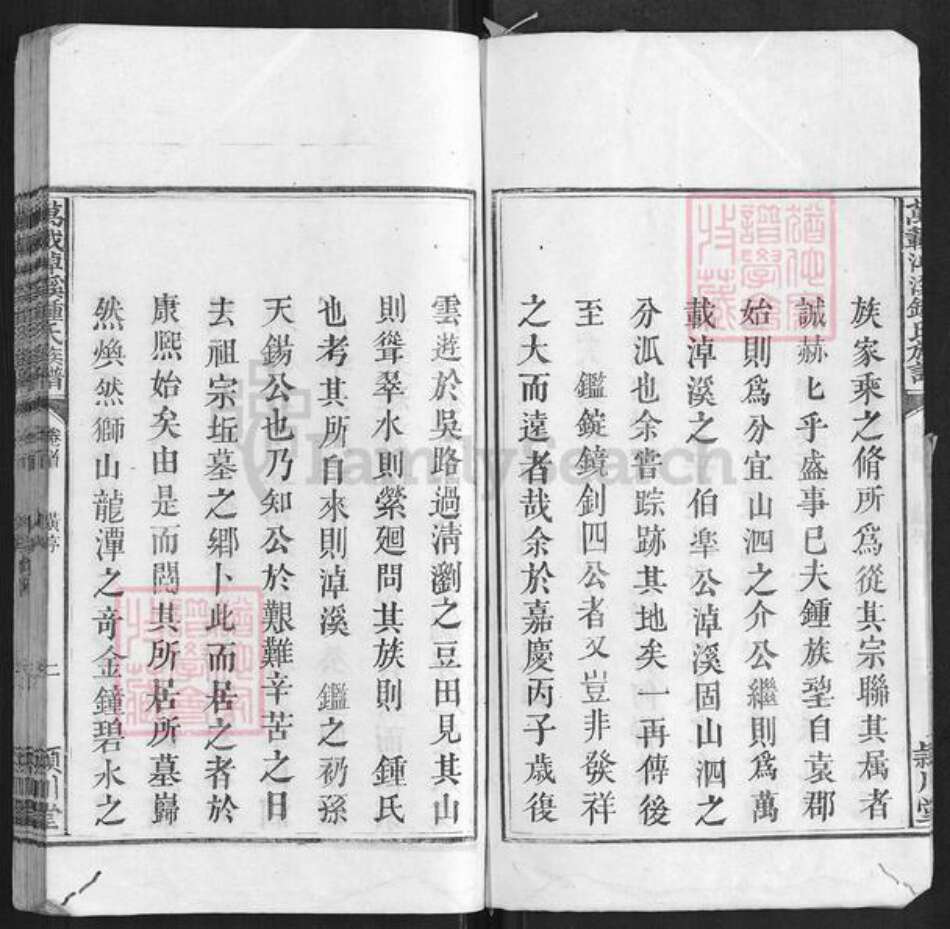 萬載漳溪鍾氏族譜
族家乘之脩所爲從其宗聯其属者
誠赫匕乎盛事巳夫鍾族望自袁郡
始則爲分宜山泗之介公繼則爲萬
載淖溪之伯犖公淖溪固山泗之
分派也余嘗踪跡其地矣一再傳後
至 鑑鏇鐃釗四公者又豈非發祥
之大而遠者哉余於嘉慶丙子歲復
潁川堂
雲遊於吳路過清瀏之豆田見其山
則聳翠水則縈廻問其族則 鍾氏
也考其所自來則淖溪 鑑之礽孫
天錫公也乃知公於艱難辛苦之日
去祖宗坵墓之郷卜此而居之者於
康熈始矣由是而閱其所居所墓巋
然煥然獅山龍潭之竒金鐘碧水之
萬載淖溪鍾氏族譜
卷首
潁川堂
FamilySearch